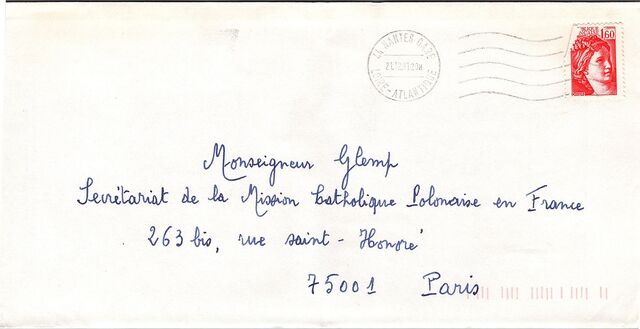 44 NANTES GARE
LOIRE-ATLANTIQUE
1,60
Monseigneur Glemp
Secrétariat de la Mission Catholique Polonaise en France
263 bis, rue saint - Honoré
75001 Paris